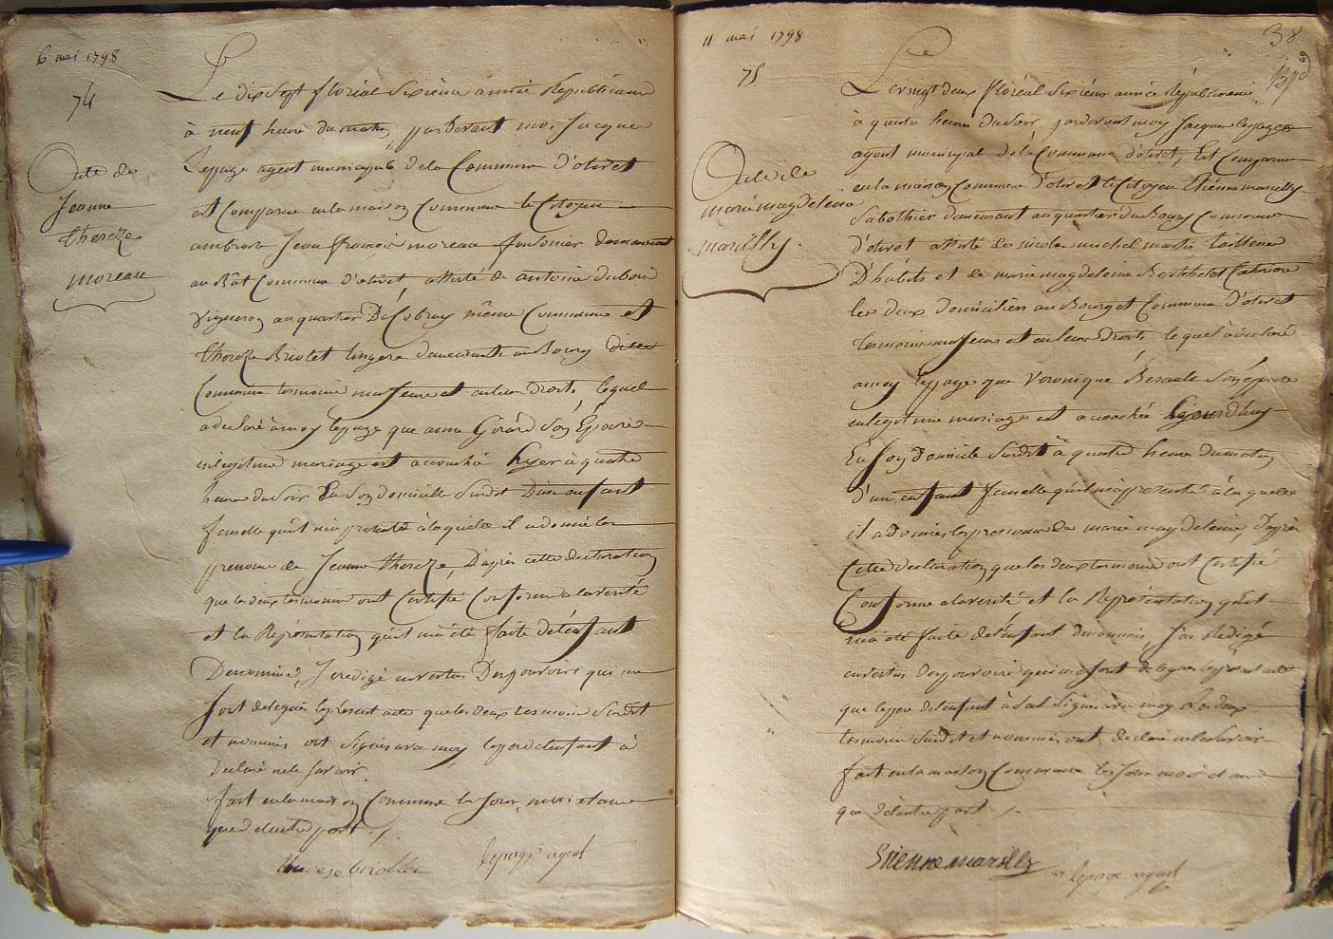 6 mai 1798
74
Acte de
Jeanne
thereze
moreau
Le dix Sept floréal Sixieme année Républicaine
à neuf heure du matin par devant moi Jacque
Lepage agent municipale de la Commune d'olivet
est Comparue en la maison Commune le Citoyen
ambroise Jean francois moreau demeurant
au Bât Commune d'olivet assisté de antoine dubois
Vigneron au quartier De Cobray même Commune et
thereze Briolet lingere demeurante au Bourg dite
Commune temoins majeure et au leur droits lequel
a declaré à moy lepage que anne Girard Son Epouse
en legitime mariage est accouché hyer à quatre
heure du soir En Son domicille Susdit D'un enfant
femelle quil m'a presenté à laquelle il a donné les
prenoms de Jeanne thereze, D'apres cette declaration
que les deux temoins ont Certifié Conforme a la verité
et la Représentation quil m'a été faite de l'enfant
Denommé, J'ai redigé en vertus Des pouvoirs qui me
sont delegués le present acte que les deux temoins Susdit
et nommés ont Signés avec moy le pere de l'enfant à
declaré ne le savoir.
fait en la maison Commune les Jour, mois et an
que de l'autre part ./.
therese briollet
lepage agent
11 mai 1798
38
75
Acte de
marie magdeleine
marcilly
Le vingt deux floréal Sixieme année Républicaine
à quatre heure du soir, par devant moy Jacque lepage
agent municipal de la Commune d'olivet, Est Comparue
en la maison Commune d'olivet le Citoyen Etienne marcilly
Sabothier demeurant au quartier du Bourg Commune
d'olivet assisté de nicolas michel martin tailleur
D'habits et de marie magdeleine Berthelot
les deux domiciliés au Bourg et Commune d'olivet
temoins majeurs et au leur Droits lequel à declaré
a moy lepage que Veronique Beraule Son épouse
en legitime mariage est accouchée aujourd'huy
En Son Domicile Susdit à quatre heure du matin
d'un enfant femelle quil m'a presenté à laquelle
il a donné les prenoms de marie magdeleine, D'après
Cette declaration que les deux temoins ont Certifié
Conforme a la verité et la Représentation quil
m'a été faite de l'enfant denommé, J'ai Redigé
en vertus des pouvoirs qui me sont delegués le present acte
que le pere de l'enfant à Signé avec moy les deux
temoins Susdit et nommés ont declaré ne le savoir
fait en la maison Commune les Jour mois et an
que de l'autre part ./.
Etienne marcilly
lepage agent